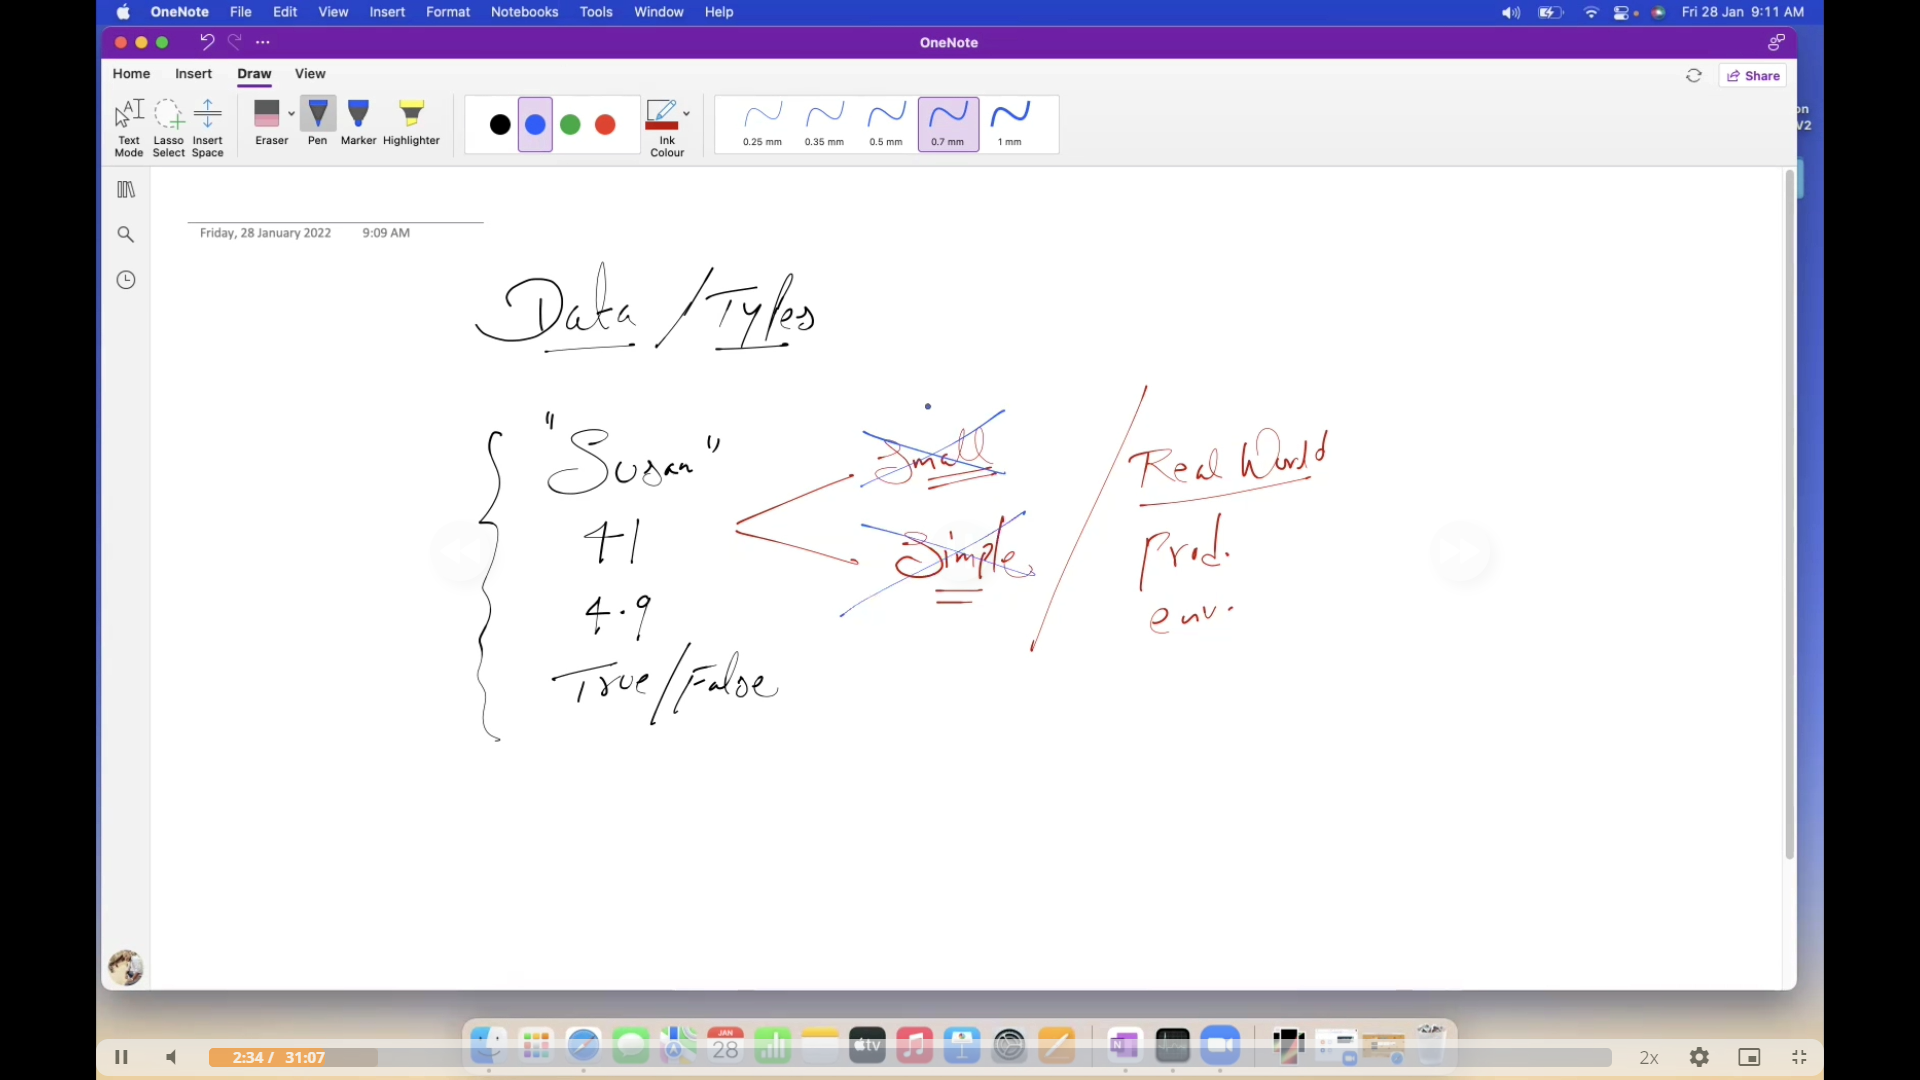 OneNote File Edit View Insert Format Notebooks Tools Window Help Fri 28 Jan 9:11 AM
OneNote
Home Insert Draw View Share
Text Mode Lasso Select Insert Space Eraser Pen Marker Highlighter Ink Colour 0.25 mm 0.35 mm 0.5 mm 0.7 mm 1 mm
on
V2
Friday, 28 January 2022 9:09 AM
Data / Types
"Susan"
41
4.9
True/False
Small
Simple
Real World
Prod.
env.
JAN
28
tv
N
2:34 / 31:07 2x